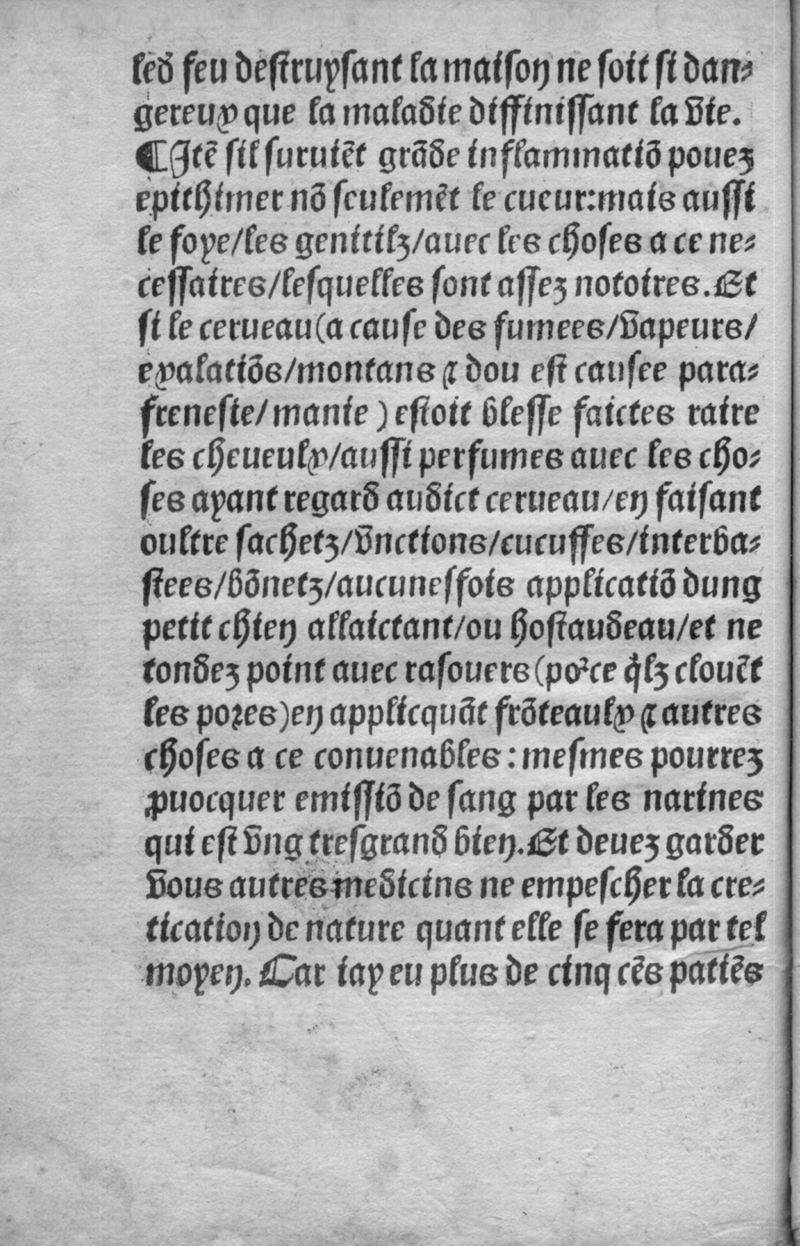 led̃ feu destruysant la maison ne soit si dan⸗
gereux que la maladie diffinissant la vie.
¶Itẽ sil suruiẽt grãde inflammatiõ pouez
epithimer nõ seulemẽt le cueur:mais aussi
le foye/les genitilz/auec les choses a ce ne⸗
cessaires/lesquelles sont assez notoires.Et
si le cerueau(a cause des fumees/vapeurs/
exalatiõs/montans ⁊ dou est causee para⸗
frenesie/manie) estoit blesse faictes raire
les cheueulx/aussi perfumes auec les cho⸗
ses ayant regard audict cerueau/en faisant
oultre sachetz/vnctions/cucuffes/interba⸗
stees/bõnetz/aucunesfois applicatiõ dung
petit chien allaictant/ou hostaudeau/et ne
tondez point auec rasouers(poꝛce q̃lz clouẽt
les poꝛes)en applicquãt frõteaulx ⁊ autres
choses a ce conuenables:mesmes pourrez
ꝓuocquer emissiõ de sang par les narines
qui est vng tresgrand bien.Et deuez garder
vous autres medicins ne empescher la cre⸗
tication de nature quant elle se fera par tel
moyen. Car iay eu plus de cinq cẽs patiẽs